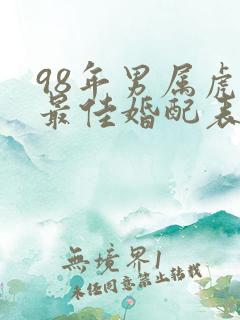 98年男属虎
最佳婚配表
無境界1
未经同意禁止转载